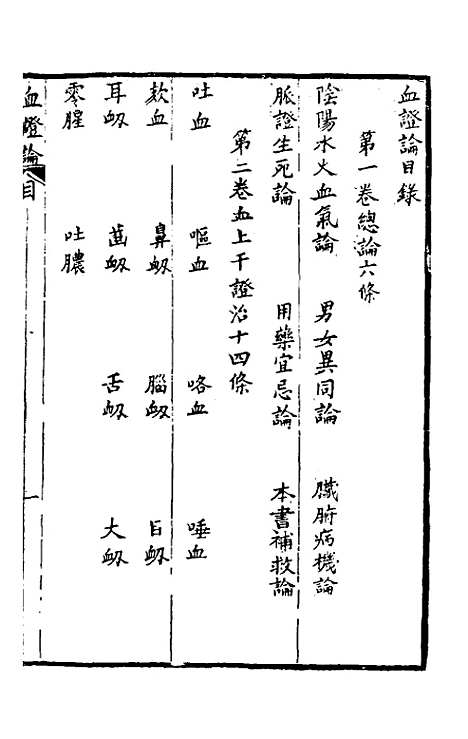 血證論目錄
第一卷總論六條
陰陽水火血氣論 男女異同論 臟腑病機論
脈證生死論 用藥宜忌論 本書補救論
第二卷血上干證治十四條
吐血 嘔血 咯血 唾血
欬血 鼻衂 腦衂 目衂
耳衂 齒衂 舌衂 大衂
零腥 吐膿
血證論 目 一